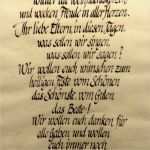 und wecken Freude in aller Herzen.
Ihr liebe Eltern, in diesen Tagen,
was sollen wir singen,
was sollen wir sagen?
Wir wollen euch wünschen zum
heiligen Feste vom Schönen
das Schönste, vom Guten
das Beste!
Wir wollen euch danken für
alle Gaben und wollen
euch immer noch